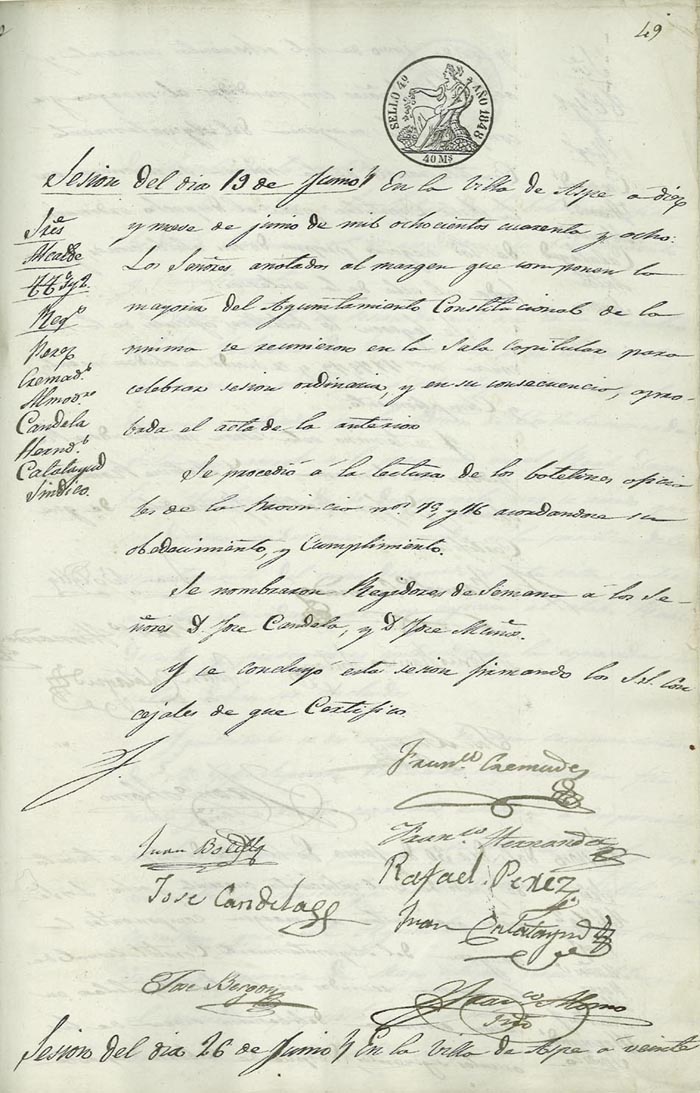 49
SELLO 4º AÑO 1848
40 Ms
Sesion del dia 19 de Junio En la Villa de Aspe a diez
y nueve de junio de mil ochocientos cuarenta y ocho:
Los Señores anotados al margen que componen la
mayoria del Ayuntamiento Constitucional de la
misma se reunieron en la Sala Capitular para
celebrar sesion ordinaria, y en su consecuencia, apro-
bada el acta de la anterior
Sres
Alcalde
Regs
Perez
Cremads
Almodro
Candela
Hernds
Calatayud
Sindico.
Se procedió á la lectura de los boletines oficia
les de la Provincia nos y 46 acordandose su
obedecimiento, y Cumplimiento.
Se nombraron Regidores de Semana á los Se-
ñores D. Jose Candela, y D. Jose Muños.
Y se concluyó esta sesion firmando los S.S. Con
cejales de que Certifico.
Franco Cremades
Juan
Franco Hernandez
Jose Candela
Rafael Perez
Juan Calatayud
Jose
Sesion del dia 26 de Junio En la Villa de Aspe a veinte